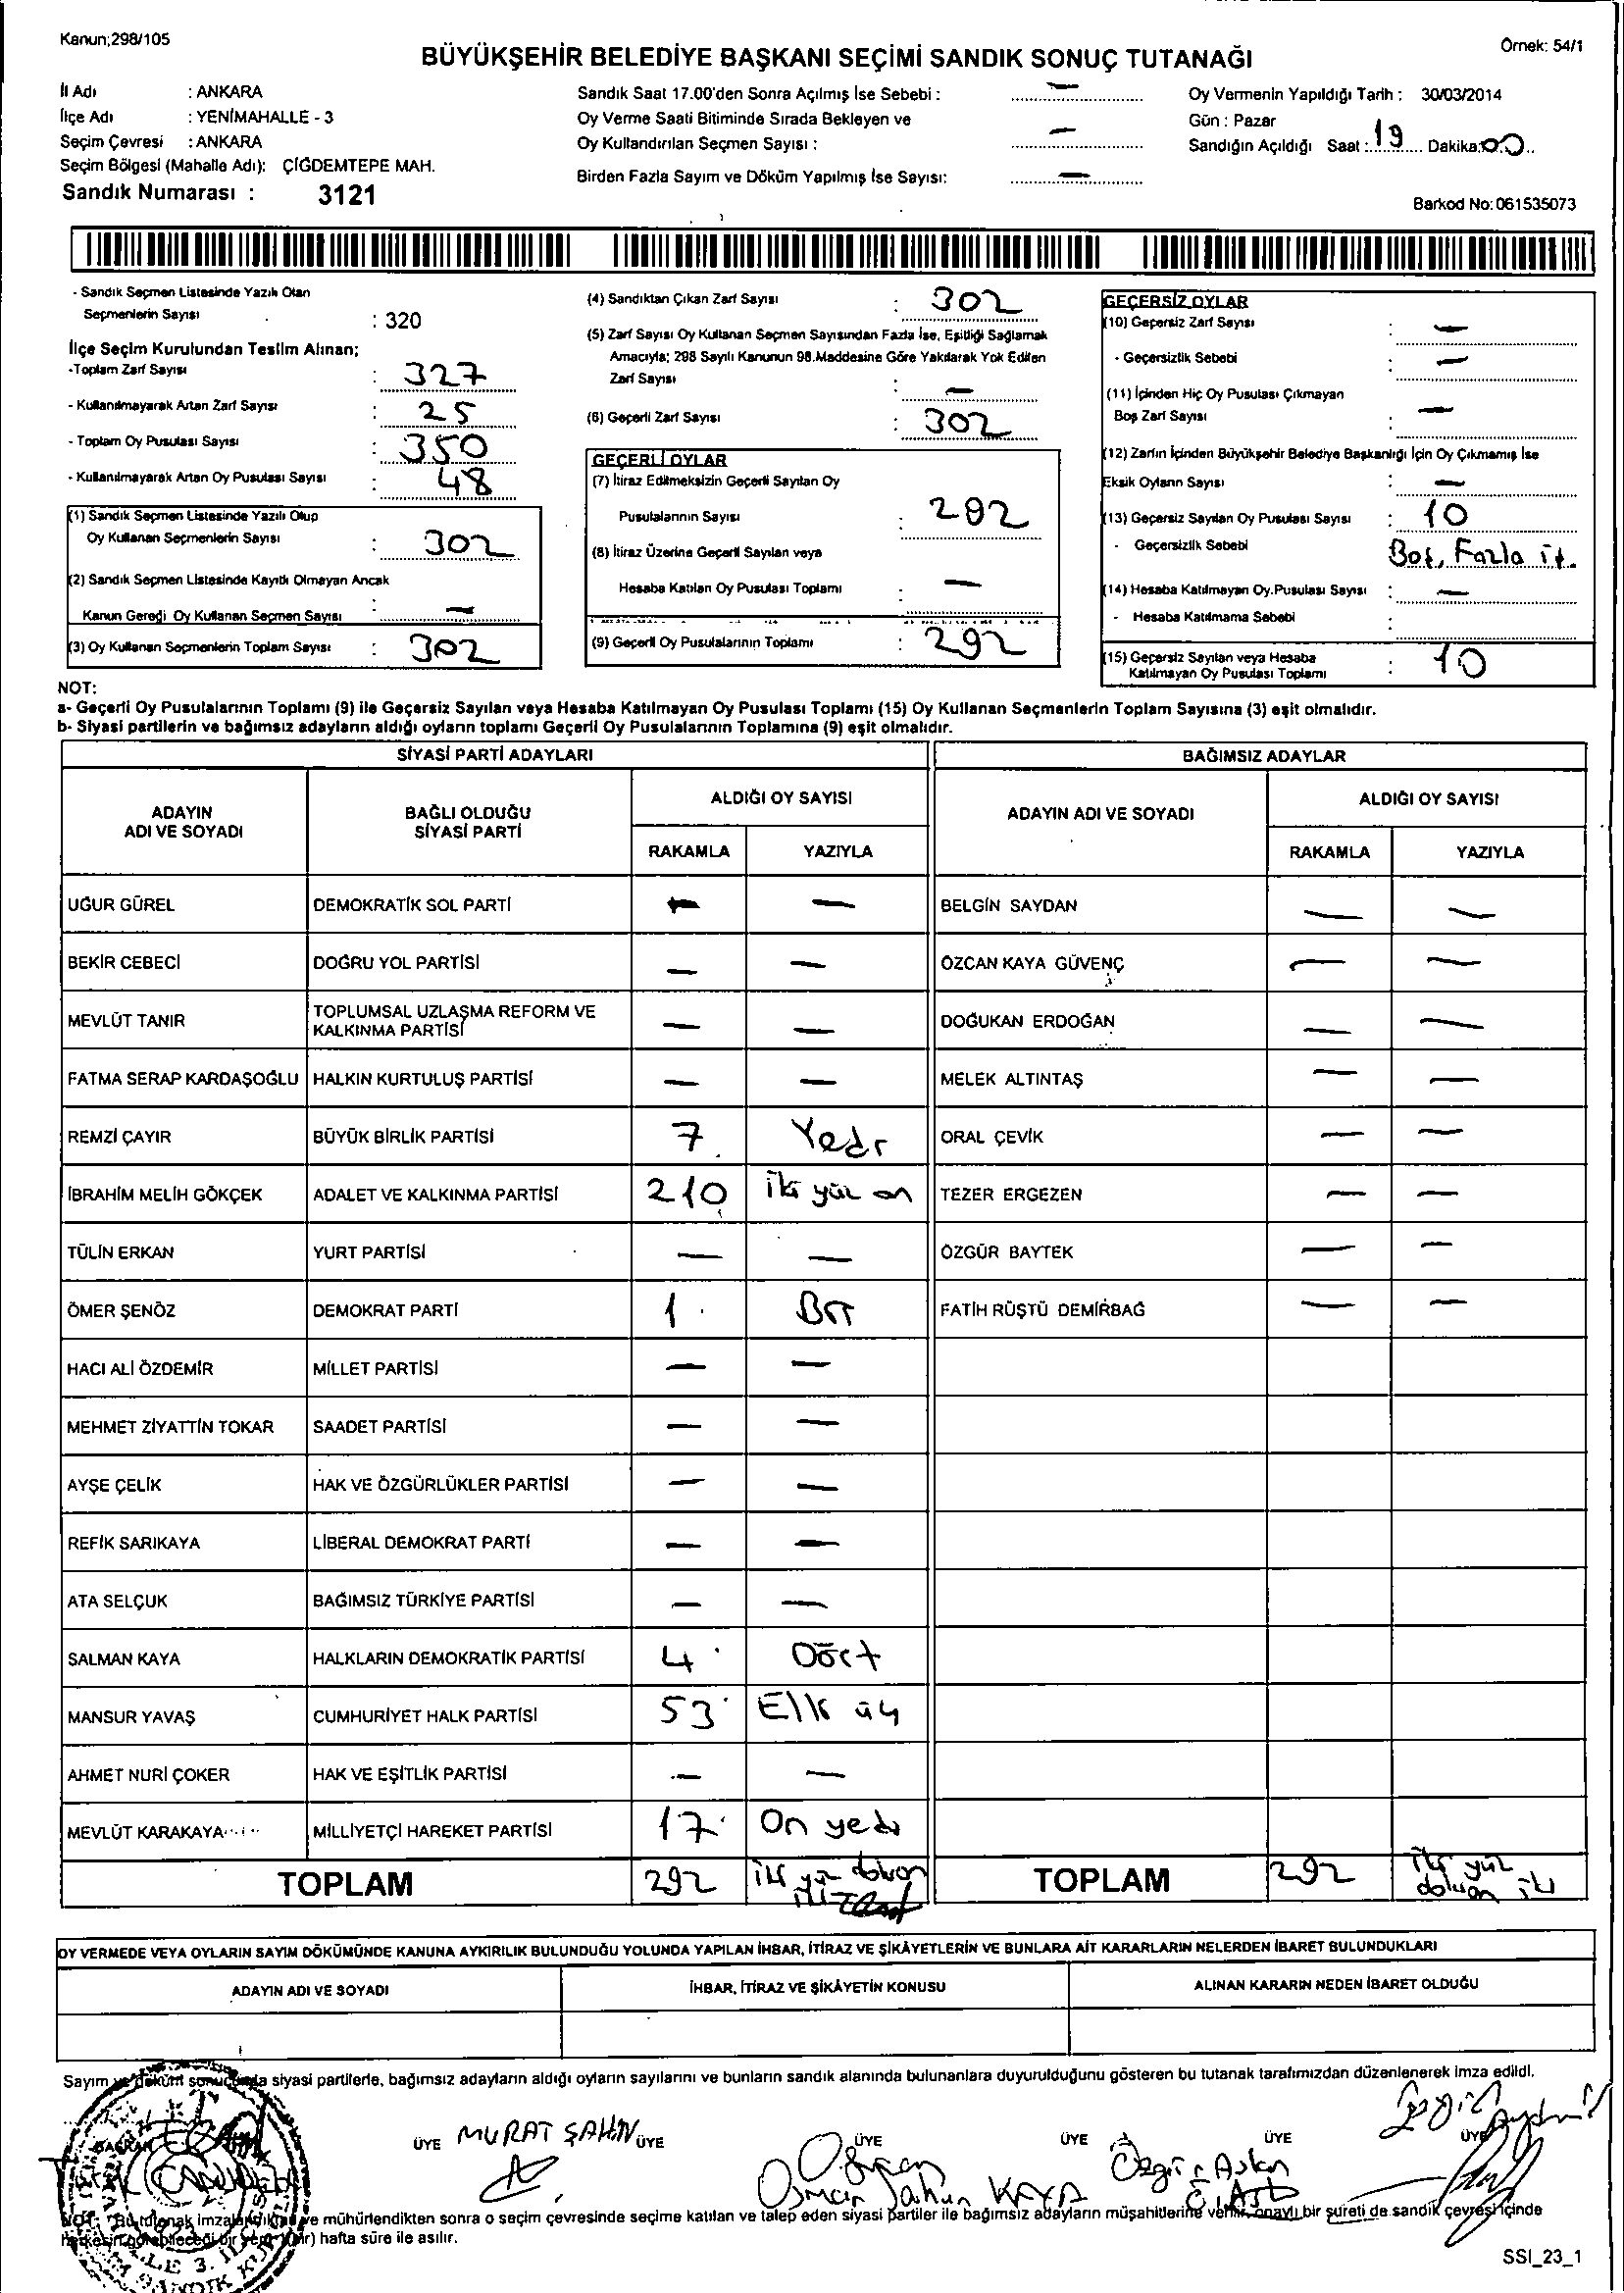 Kanun;298/105
Örnek: 54/1
BÜYÜKŞEHİR BELEDİYE BAŞKANI SEÇİMİ SANDIK SONUÇ TUTANAĞI
İl Adı : ANKARA
İlçe Adı : YENİMAHALLE - 3
Seçim Çevresi : ANKARA
Seçim Bölgesi (Mahalle Adı): ÇİĞDEMTEPE MAH.
Sandık Numarası : 3121
Sandık Saat 17.00'den Sonra Açılmış İse Sebebi : —
Oy Verme Saati Bitiminde Sırada Bekleyen ve
Oy Kullandırılan Seçmen Sayısı : —
Birden Fazla Sayım ve Döküm Yapılmış İse Sayısı: —
Oy Vermenin Yapıldığı Tarih : 30/03/2014
Gün : Pazar
Sandığın Açıldığı Saat : 19 Dakika: 00
Barkod No: 061535073
- Sandık Seçmen Listesinde Yazılı Olan
Seçmenlerin Sayısı : 320
İlçe Seçim Kurulundan Teslim Alınan;
-Toplam Zarf Sayısı : 327
- Kullanılmayarak Artan Zarf Sayısı : 25
- Toplam Oy Pusulası Sayısı : 350
- Kullanılmayarak Artan Oy Pusulası Sayısı : 48
(1) Sandık Seçmen Listesinde Yazılı Olup
Oy Kullanan Seçmenlerin Sayısı : 302
(2) Sandık Seçmen Listesinde Kayıtlı Olmayan Ancak
Kanun Gereği Oy Kullanan Seçmen Sayısı : —
(3) Oy Kullanan Seçmenlerin Toplam Sayısı : 302
(4) Sandıktan Çıkan Zarf Sayısı : 302
(5) Zarf Sayısı Oy Kullanan Seçmen Sayısından Fazla İse, Eşitliği Sağlamak
Amacıyla; 298 Sayılı Kanunun 98.Maddesine Göre Yakılarak Yok Edilen
Zarf Sayısı : —
(6) Geçerli Zarf Sayısı : 302
GEÇERLİ OYLAR
(7) İtiraz Edilmeksizin Geçerli Sayılan Oy
Pusulalarının Sayısı : 292
(8) İtiraz Üzerine Geçerli Sayılan veya
Hesaba Katılan Oy Pusulası Toplamı : —
(9) Geçerli Oy Pusulalarının Toplamı : 292
GEÇERSİZ OYLAR
(10) Geçersiz Zarf Sayısı : —
- Geçersizlik Sebebi : —
(11) İçinden Hiç Oy Pusulası Çıkmayan
Boş Zarf Sayısı : —
(12) Zarfın İçinden Büyükşehir Belediye Başkanlığı İçin Oy Çıkmamış İse
Eksik Oyların Sayısı : —
(13) Geçersiz Sayılan Oy Pusulası Sayısı : 10
- Geçersizlik Sebebi Boş, Fazla
(14) Hesaba Katılmayan Oy.Pusulası Sayısı : —
- Hesaba Katılmama Sebebi :
(15) Geçersiz Sayılan veya Hesaba
Katılmayan Oy Pusulası Toplamı : 10
NOT:
a- Geçerli Oy Pusulalarının Toplamı (9) ile Geçersiz Sayılan veya Hesaba Katılmayan Oy Pusulası Toplamı (15) Oy Kullanan Seçmenlerin Toplam Sayısına (3) eşit olmalıdır.
b- Siyasi partilerin ve bağımsız adayların aldığı oyların toplamı Geçerli Oy Pusulalarının Toplamına (9) eşit olmalıdır.
SİYASİ PARTİ ADAYLARI
BAĞIMSIZ ADAYLAR
ADAYIN
ADI VE SOYADI
BAĞLI OLDUĞU
SİYASİ PARTİ
ALDIĞI OY SAYISI
RAKAMLA YAZIYLA
ADAYIN ADI VE SOYADI
ALDIĞI OY SAYISI
RAKAMLA YAZIYLA
UĞUR GÜREL DEMOKRATİK SOL PARTİ — — BELGİN SAYDAN — —
BEKİR CEBECİ DOĞRU YOL PARTİSİ — — ÖZCAN KAYA GÜVENÇ — —
MEVLÜT TANIR TOPLUMSAL UZLAŞMA REFORM VE
KALKINMA PARTİSİ — — DOĞUKAN ERDOĞAN — —
FATMA SERAP KARDAŞOĞLU HALKIN KURTULUŞ PARTİSİ — — MELEK ALTINTAŞ — —
REMZİ ÇAYIR BÜYÜK BİRLİK PARTİSİ 7 Yedi ORAL ÇEVİK — —
İBRAHİM MELİH GÖKÇEK ADALET VE KALKINMA PARTİSİ 210 iki yüz on TEZER ERGEZEN — —
TÜLİN ERKAN YURT PARTİSİ — — ÖZGÜR BAYTEK — —
ÖMER ŞENÖZ DEMOKRAT PARTİ 1 Bir FATİH RÜŞTÜ DEMİRBAĞ — —
HACI ALİ ÖZDEMİR MİLLET PARTİSİ — —
MEHMET ZİYATTİN TOKAR SAADET PARTİSİ — —
AYŞE ÇELİK HAK VE ÖZGÜRLÜKLER PARTİSİ — —
REFİK SARIKAYA LİBERAL DEMOKRAT PARTİ — —
ATA SELÇUK BAĞIMSIZ TÜRKİYE PARTİSİ — —
SALMAN KAYA HALKLARIN DEMOKRATİK PARTİSİ 4 Dört
MANSUR YAVAŞ CUMHURİYET HALK PARTİSİ 53 Elli üç
AHMET NURİ ÇOKER HAK VE EŞİTLİK PARTİSİ — —
MEVLÜT KARAKAYA MİLLİYETÇİ HAREKET PARTİSİ 17 On yedi
TOPLAM 292 iki yüz doksan iki
TOPLAM 292 iki yüz doksan iki
OY VERMEDE VEYA OYLARIN SAYIM DÖKÜMÜNDE KANUNA AYKIRILIK BULUNDUĞU YOLUNDA YAPILAN İHBAR, İTİRAZ VE ŞİKÂYETLERİN VE BUNLARA AİT KARARLARIN NELERDEN İBARET BULUNDUKLARI
ADAYIN ADI VE SOYADI İHBAR, İTİRAZ VE ŞİKÂYETİN KONUSU ALINAN KARARIN NEDEN İBARET OLDUĞU
Sayım ve döküm sonucunda siyasi partilerle, bağımsız adayların aldığı oyların sayılarını ve bunların sandık alanında bulunanlara duyurulduğunu gösteren bu tutanak tarafımızdan düzenlenerek imza edildi.
BAŞKAN ÜYE MURAT ŞAHİN ÜYE ÜYE ÜYE ÜYE ÜYE
Osman KAYA Özgür Aslan
NOT: Bu tutanak imzalandıktan ve mühürlendikten sonra o seçim çevresinde seçime katılan ve talep eden siyasi partiler ile bağımsız adayların müşahitlerine verilir, onaylı bir sureti de sandık çevresi içinde
herkesin görebileceği bir yere (bir) hafta süre ile asılır.
SSI_23_1